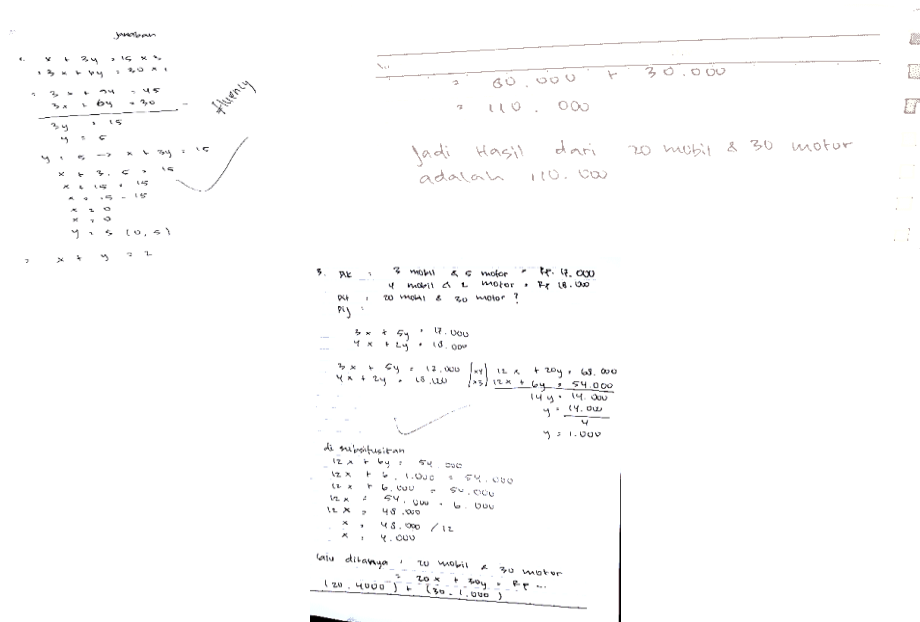 Jawaban
x + 3y = 15 x 3
3x + 6y = 30 x 1
= 3x + 9y = 45
3x + 6y = 30
3y = 15
y = 5
y = 5 -> x + 3y = 15
x + 3. 5 = 15
x + 15 = 15
x = 15 - 15
x = 0
x = 0
y = 5 (0, 5)
= x + y = 2
fluency
= 80.000 + 30.000
= 110.000
Jadi Hasil dari 20 mobil & 30 motor
adalah 110.000
3. Dik : 3 mobil & 5 motor = Rp. 17.000
4 mobil & 2 motor = Rp 18.000
Dit : 20 mobil & 30 motor ?
Dij :
3x + 5y = 17.000
4x + 2y = 18.000
3x + 5y = 17.000 |x4| 12x + 20y = 68.000
4x + 2y = 18.000 |x3| 12x + 6y = 54.000
14y = 14.000
y = 14.000
4
y = 1.000
di subsitusikan
12x + 6y = 54.000
12x + 6. 1.000 = 54.000
12x + 6.000 = 54.000
12x = 54.000 - 6.000
12x = 48.000
x = 48.000 / 12
x = 4.000
Lalu ditanya : 20 mobil & 30 motor
= 20x + 30y = Rp ...
(20. 4000) + (30. 1.000)